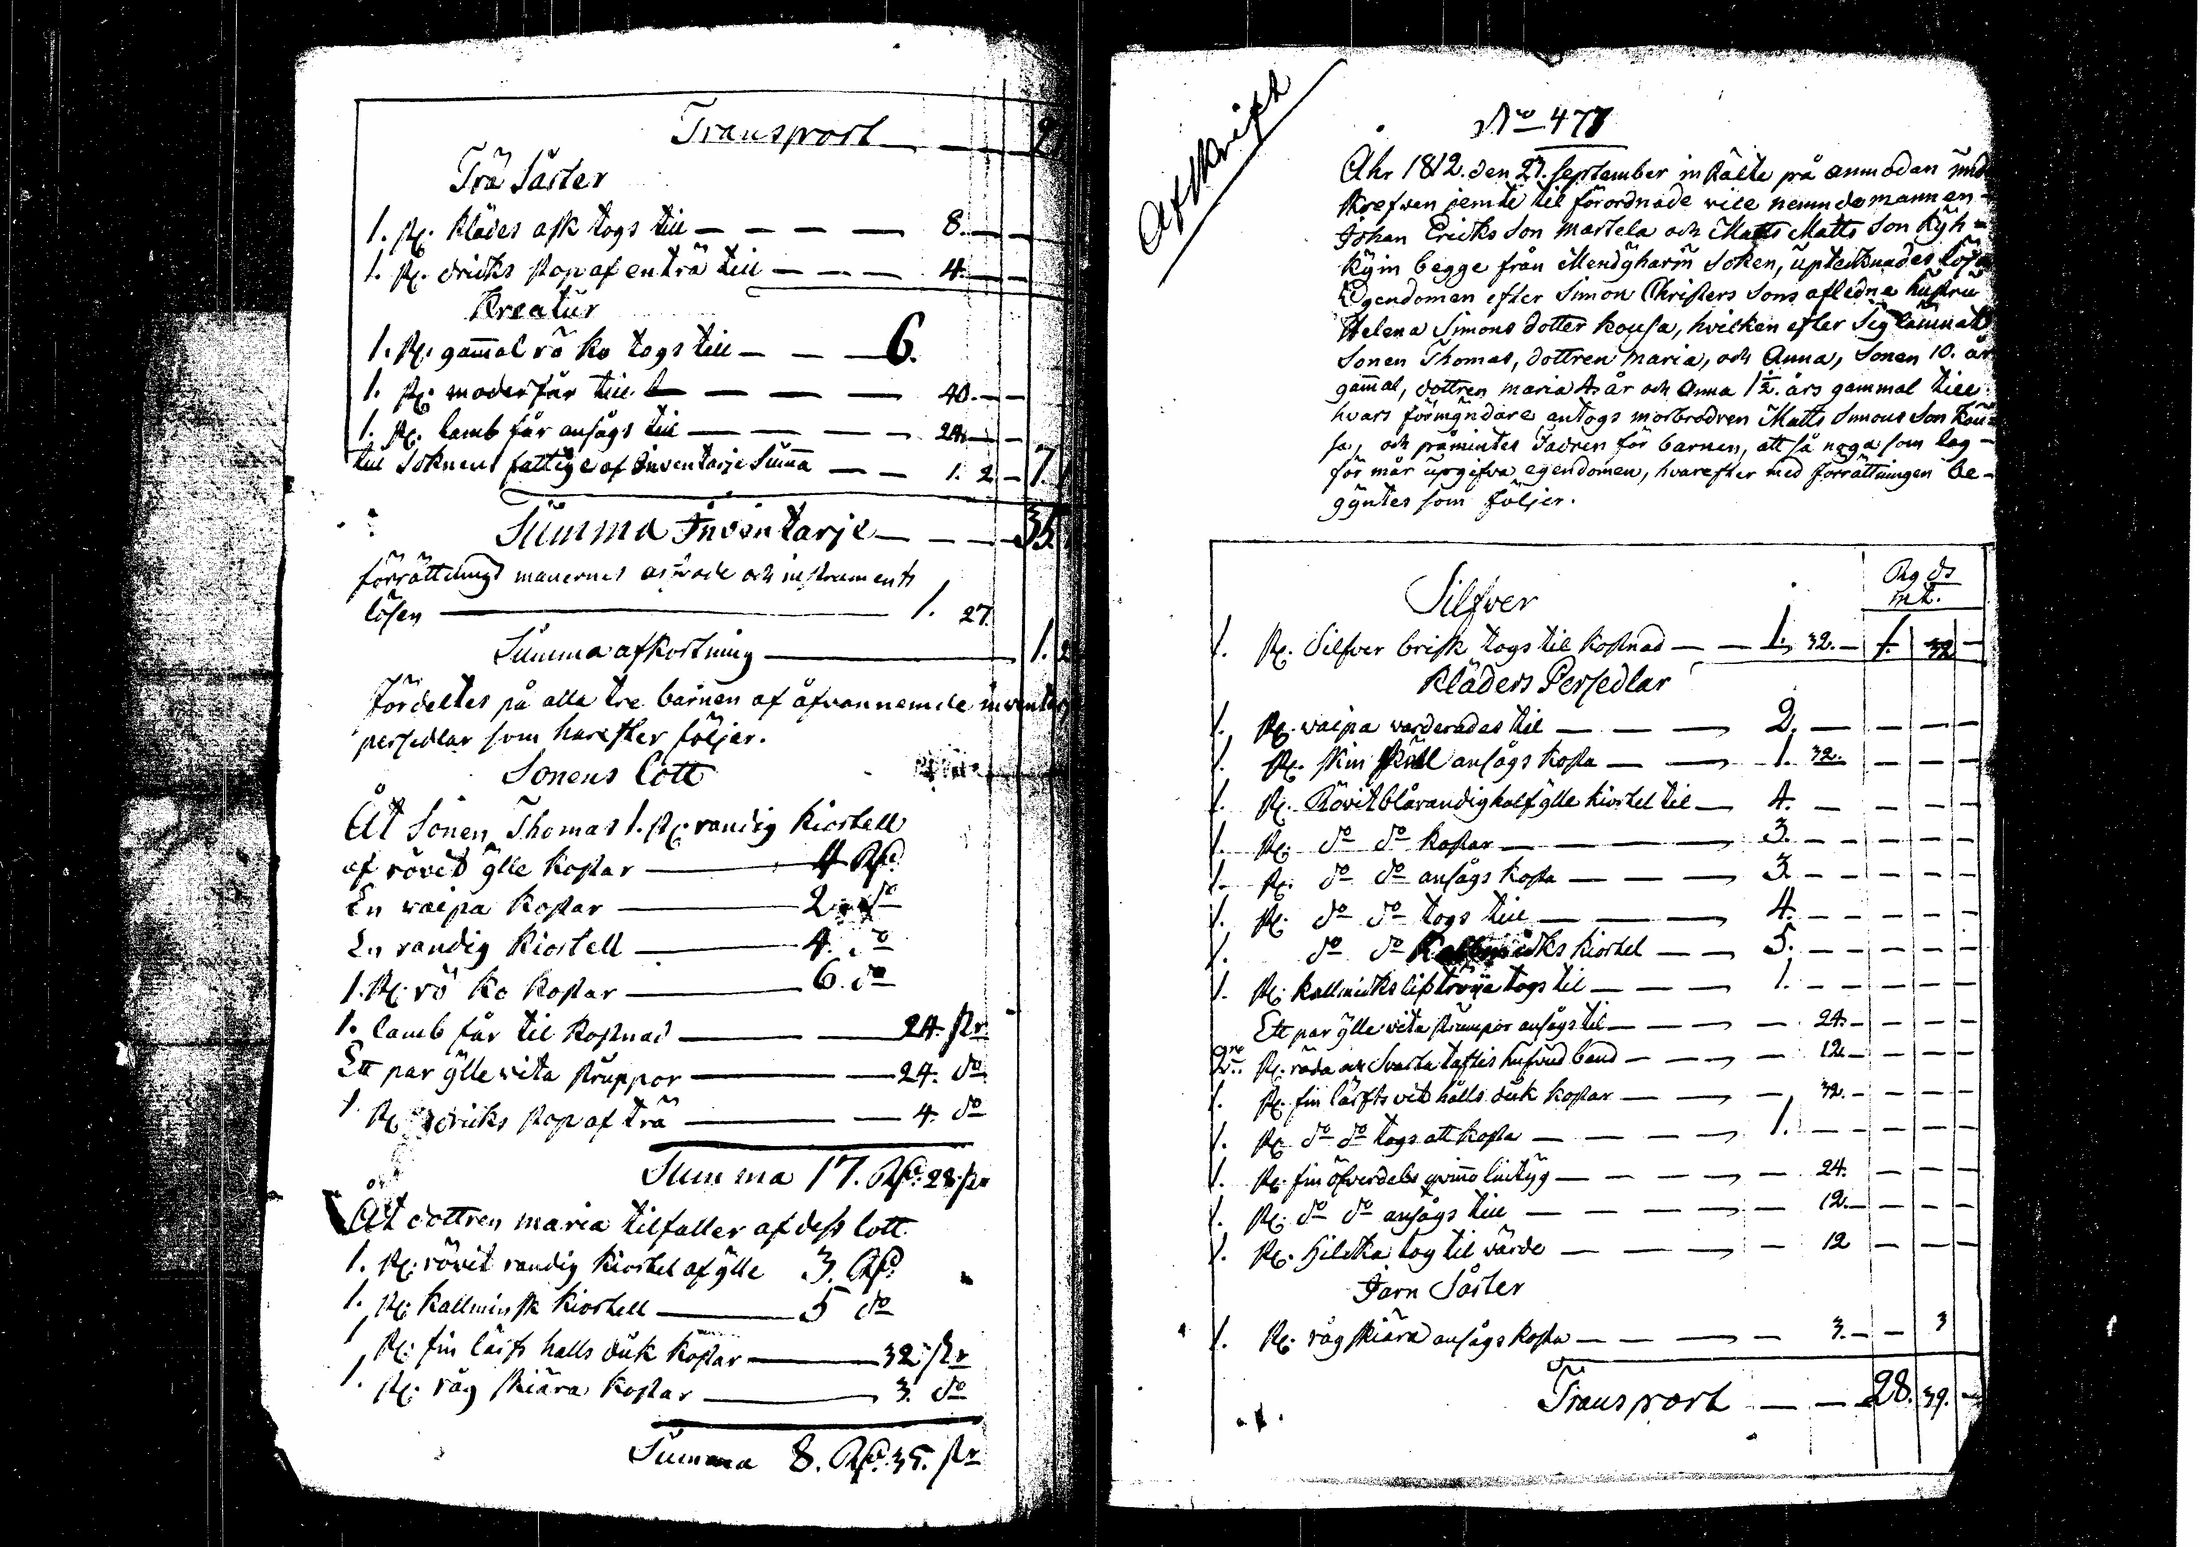 Transport — — 2
Trä Såster
1. st. klädes ask togs till — — — — 8. — —
1. st. dricks stop af en trä till — — — 4. — —
Kreatur
1. st. gam̄al rö ko togs till — — — 6.
1. st. moder får till — — — — 40. — —
1. st. lamb får ansågs till — — — — 24. — —
till Soknens fattige af Inventarje Sum̄a — — 1. 2 — 7.
Summa Inventarje — — — 35
förrättnings manernes arvode och instruments
lösen — 1. 27.
Summa afkortning — 1. 2
fördeltes på alla tre barnen af åfvannemde inventarj
persedlar som harefter följer.
Sonens Lott
Åt Sonen Thomas 1. st. randig kiortell
af rövit ÿlle kostar — 4 Rd.
En vaipa kostar — 2. do
En randig kiortell — 4. do
1. st. rö ko kostar — 6. do
1. lamb får til kostnad — — 24. sk
Ett par ÿlle vita struppor — — 24. do
1 st. dricks stop af trä — — 4. do
Summa 17. Rd. 28. sk
Åt dottren maria tilfaller af dess lott
1. st. rövit randig kiortel af ÿlle 3. Rd.
1. st. kallminsk kiortell — 5 do
1 st. fin lärfts halls duk kostar — 32 sk
1. st. råg skiära kostar — 3. do
Summa 8. Rd. 35. sk
Afskrift
No 477
Åhr 1812. den 27. September in kälte på anmodan und
skrefven jemte til förordnade vice nemndemannen
Johan Ericks Son martela och Matts Matts Son Kÿh=
kÿin begge från Mendÿharju Soken, uptecknades lösa
Egendomen efter Simon Christers Sons afledne hustru
Helena Simons dotter kousa, hvilken efter Sig lämnat
Sonen Thomas, dottren maria, och Anna, Sonen 10. år
gam̄al, dottren maria 4. år och Anna 1½. års gammal till
hvars förmÿndare antogs morbrodren Matts Simons Son Kou=
sa, och påmintes Fadren för barnen, att så noga som lag=
för mår upgifva egendomen, hvarefter med förrättningen be=
gÿntes som följer.
Rg ds
mt.
Silfver
1. st. Silfver brisk togs til kostnad — — 1. 32. — 1. 32 —
Kläders Persedlar
1. st. vaipa varderades til — — — 2. — — — —
1. st. skin ansågs kosta — — 1. 32. — — —
1. st. Rövit blårandig half ÿlle kiortel til — 4. — — — —
1. st. do do kostar — — — 3. — — — —
1. st. do do ansågs kosta — — — 3. — — — —
1. st. do do togs till — — — 4. — — — —
1. do do kallmicks kiortel — — 5. — — — —
1. st. kallmicks lifströija togs til — — — 1. — — — —
Ett par ÿlle vita strumpor ansågs til — — — 24. — — — —
2ne st. röda och Svarta taftis hufvud band — — — 12. — — — —
1. st. fin lärfts vit halls duk kostar — — 32. — — — —
1. st. do do togs att kosta — — — 1. — — — —
1. st. fin öfverdels qvin̄o lintÿg — — — 24. — — —
1. st. do do ansågs till — — — — 12. — — — —
1. st. Hilcka tog til värde — — — — 12 — — —
Jarn Såster
1. st. råg skiära ansågs kosta — — — — 3. — — 3
Transport — — 28. 39. —